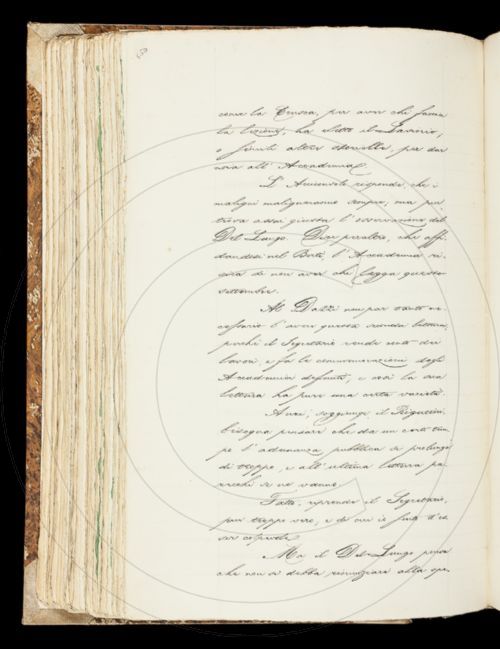 cerca la Crusca, per aver che faccia
la lezione, ha eletto il
o simili altre per dar
noia all' Accademia.
L' Arciconsolo risponde, che i
maligni malignaranno sempre, ma pur
trova assai giusta l' osservazione del
Del Lungo. Dice peraltro, che affi-
dandosi nel Conti, l' Accademia
di non aver che legga questo
settembre.
Al Dazzi non par tanto ne-
cessario l' aver questa seconda lettura,
perchè il Segretario rende conto dei
lavori, e fa la commemorazione degli
Accademici defunti, e così la sua
lettura ha pure una certa varietà.
Anzi, soggiunge il Rigutini,
bisogna pensare che da un certo tem-
po l' adunanza pubblica si prolunga
di troppo, e all' ultima lettura pa-
recchi se ne vanno.
Fatto, riprende il Segretario,
pur troppo vero, e di cui è
colpevole.
Ma il Del-Lungo pensa
che non si debba rinunziare alla spe-